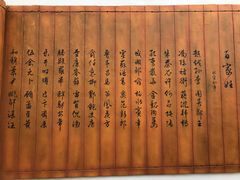 百家姓
趙錢孫李 周吳鄭王
馮陳褚衛 蔣沈韓楊
朱秦尤許 何呂施張
孔曹嚴華 金魏陶姜
戚謝鄒喻 柏水竇章
雲蘇潘葛 奚范彭郎
魯韋昌馬 苗鳳花方
俞任袁柳 酆鮑史唐
費廉岑薛 雷賀倪湯
滕殷羅畢 郝鄔安常
樂于時傅 皮卞齊康
伍余元卜 顧孟平黃
和穆蕭尹 姚邵湛汪